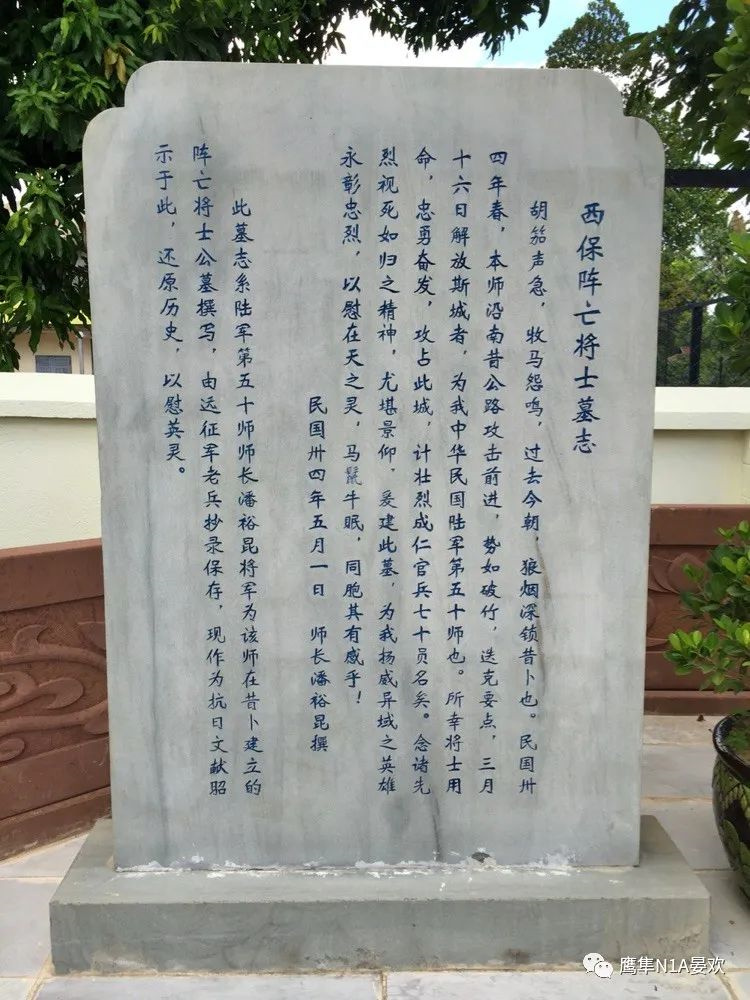 西保阵亡将士墓志
胡笳声急，牧马怨鸣，过去今朝，狼烟深锁昔卜也。民国卅
四年春，本师沿南昔公路攻击前进，势如破竹，迭克要点，三月
十六日解放斯城者，为我中华民国陆军第五十师也。所幸将士用
命，忠勇奋发，攻占此城，计壮烈成仁官兵七十员名矣。念诸先
烈视死如归之精神，尤堪景仰，爰建此墓，为我扬威异域之英雄
永彰忠烈，以慰在天之灵，马鬣牛眠，同胞其有感乎！
民国卅四年五月一日 师长潘裕昆撰
此墓志系陆军第五十师师长潘裕昆将军为该师在昔卜建立的
阵亡将士公墓撰写，由远征军老兵抄录保存，现作为抗日文献昭
示于此，还原历史，以慰英灵。
鹰隼N1A晏欢